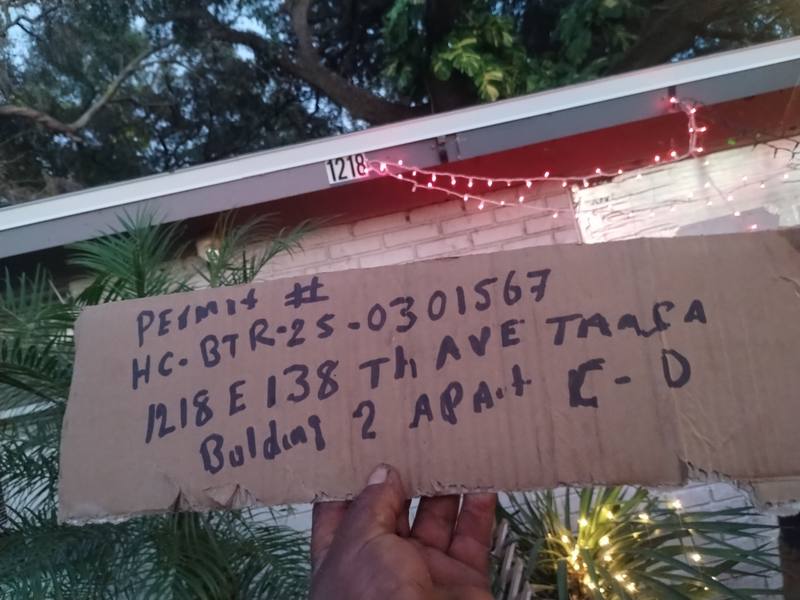 1218
PERMIT #
HC-BTR-25-0301567
1218 E 138 Th AVE TAMPA
Bulding 2 APArt C-D